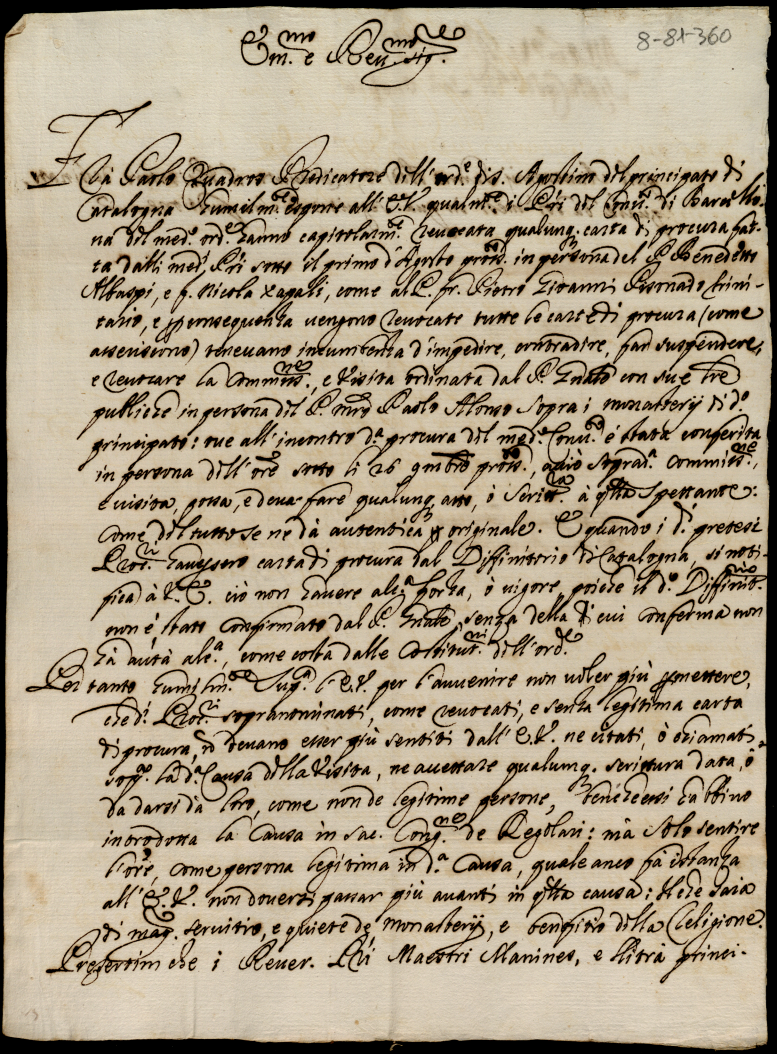 8-81-360
Em.mo e Reu.mo Sig.re
Frà Paolo Quadros Predicatore dell'ord.e di s. Agostino del principato di
Catalogna humilm.te espone all'E.V. qualm.te i P.ri del Conu.to di Barcello-
na del med.o ord.e hanno capitolarm.te reuocata qualunq. carta di procura fat-
ta dalli med.i P.ri sotto il primo d'Agosto pross.o in persona del P. Benedetto
e f. Nicola, come al P. fr. Pietro Giouanni trini-
tario, e p consequenza uengono reuocate tutte le carte di procura (come
asseriscono) teneuano incumbenza d'impedire, contradire, far suspendere,
e reuocare la Commiss.ne, e Visita ordinata dal P. Gnãle con sue l're
publiche in persona del P. Mrõ Paolo Alonso sopra i monasterij di d.o
principato: oue all'incontro d.a procura del med.o Conu.to é stata conferita
in persona dell'orẽ sotto li 26 9mbre pross.o, acciò soprad.a Commiss.ne,
e uisita, possa, e deua fare qualunq. atto, ò Scritt.ra à q'lla spettante:
come del tutto se ne dà autentica p originale. E quando i d.i pretesi
Proc.ri hauessero carta di procura dal Diffinitorio di Catalogna, si noti-
fica à V.E. ciò non hauere alc.a forza, ò uigore, poiche il d.o Diffinit.rio
non é stato confirmato dal P. Gnãle, senza della di cui conferma non
hà autà alc.a, come costa dalle Costitut.ni dell'ord.e
Per tanto humilm.te Sup.ca l'E.V. per l'auuenire non uoler più pmettere,
che d.i Proc.ri sopranominati, come reuocati, e senza legitima carta
di procura, ñ deuano esser più sentiti dall'E.V. ne citati, ò chiamati
sop.a la d.a Causa della Visita, ne accettare qualunq. scrittura data, ò
da darsi da loro, come non de legitime persone, benche essi habbino
introdotta la Causa in sac. Cong.ne de Regolari: mà solo sentire
l'orẽ, come persona legitima in d.a Causa, quale anco fà istanza
all'E.V. non douersi passar più auanti in q'lla causa: il che sarà
di mag.re seruitio, e quiete de Monasterij, e benefitio della Religione.
Presertim che i Reuer. P.ri Maestri Manines, e princi-